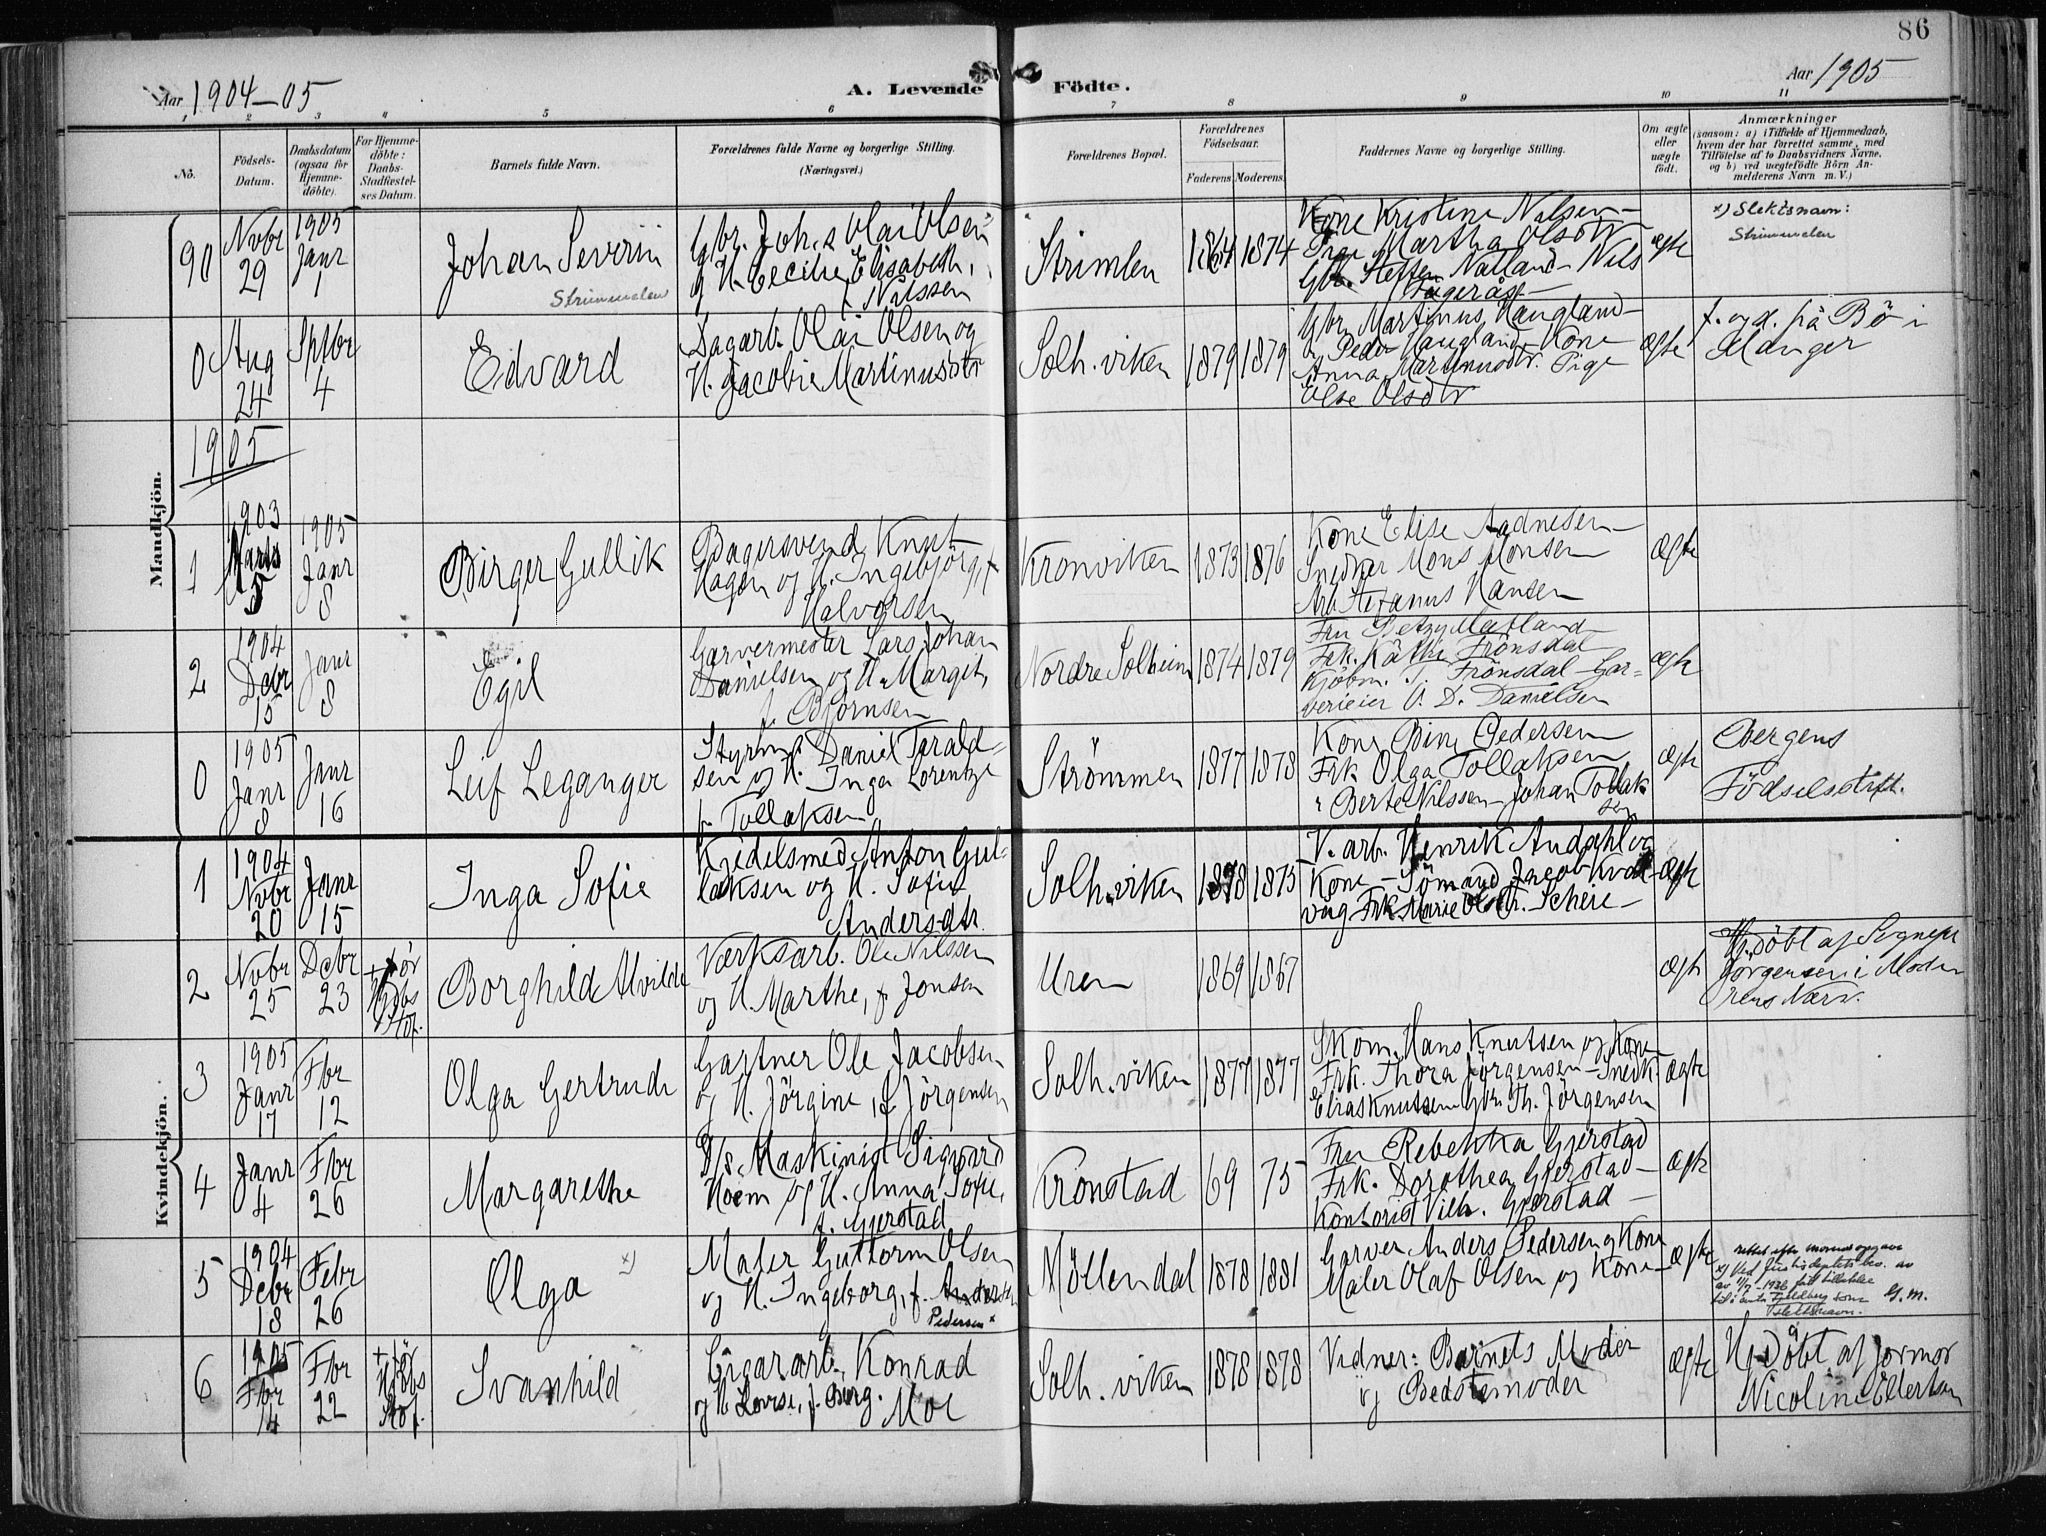 86
Aar 1904-05
A. Levende Födte.
Aar 1905
1 2 3 4 5 6 7 8 9 10 11
No.
Födsels-Datum.
Daabsdatum (ogsaa for Hjemme-döbte).
For Hjemme-döbte: Daabs-Stadfæstel-ses Datum.
Barnets fulde Navn.
Forældrenes fulde Navne og borgerlige Stilling. (Næringsvei.)
Forældrenes Bopæl.
Forældrenes Födselsaar.
Faderens. Moderens.
Faddernes Navne og borgerlige Stilling.
Om ægte eller uægte födt.
Anmærkninger
(saasom: a) i Tilfælde af Hjemmedaab, hvem der har forrettet samme, med Tilföielse af to Daabsvidners Navne, og b) ved uægtefödte Börn An-melderens Navn m. V.)
Mandkjön.
90 Novbr 29 1905 Janr 1 Johan Severin Strimmelen
Gbr. Johs Olai Olsen
og H. Cecilie Elisabeth,
f. Nilssen
Strimlen 1864 1874
Kone Kristine Nilsen-
Pige Martha Olsdtr
Gbr. Steffen Natland- Nils
Fageråsl-
ægte
x) Slektsnavn:
Strimmelen
0 Aug 24 Sptbr 4 Edvard
Dagarb. Olai Olsen og
H. Jacobie Martinusdtr
Solh.viken 1879 1879
Gbr Martinus Haugland-
" Peder Haugland- Kone
Anna Martinusdtr. Pige
Else Olsdtr
ægte
f. og d. på Bö i
Manger
1905
1 1903 Marts 5 1905 Janr 8 Birger Gullik
Bagersvend Knut
Hagen og H. Ingebjörg, f
Halvorsen
Kronviken 1873 1876
Kone Elise Aadnesen-
Snedker Mons Monsen
Arb Stefanus Hansen
ægte
2 1904 Debr 15 Janr 8 Egil
Garvermester Lars Johan
Danielsen og H. Margit,
f. Björnsen
Nordre Solheim 1874 1879
Fru Betzy Maland-
Frk. Käthe Frönsdal
Kjöbm. J. Frönsdal- Gar-
verieier O. D. Danielsen
ægte
0 1905 Janr 8 Janr 16 Leif Leganger
Styrm. Daniel Tarald-
sen og H. Inga Lorentze
f. Tollaksen
Strömmen 1877 1878
Kone Bine Pedersen
Frk Olga Tollaksen
" Berte Nilssen- Johan Tollak
sen
ægte
Bergens
Födselsstift.
Kvindekjön.
1 1904 Novbr 20 Janr 15 Inga Sofie
Kjedelsmed Anton Gul-
laksen og H. Sofie
Andersdtr.
Solh.viken 1878 1875
V. arb. Henrik Andahl og
Kone - Sömand Jacob Kval-
vaag- Frk Marie Olsdtr. Scheie-
ægte
2 Novbr 25 Debr 23 + för Hjdbs Stdf. Borghild Alvilde
Værksarb. Ole Nilssen
og H. Marthe, f. Jonsen
Uren 1869 1867
ægte
Hj.döbt af Signepr
Jörgensen i Moder
ens Nærv.
3 1905 Janr 17 Fbr 12 Olga Gertrude
Gartner Ole Jacobsen
og H. Jörgine, f. Jörgensen
Solh.viken 1877 1877
Skom. Hans Knutsen og Kone
Frk. Thora Jörgensen- Snedk
Elias Knutsen Gbr. Th. Jörgensen
ægte
4 Janr 4 Fbr 26 Margarethe
D/s Maskinist Sigvard
Hoem og H. Anna Sofie,
f. Gjerstad
Kronstad 69 75
Fru Rebekka Gjerstad
Frk. Dorothea Gjerstad-
Kontorist Vilh. Gjerstad-
ægte
5 1904 Debr 18 Febr 26 Olga x)
Maler Guttorm Olsen
og H. Ingeborg, f. Andersen
Pedersen x
Möllendal 1878 1881
Garver Anders Pedersen og Kone
Maler Olaf Olsen og Kone-
ægte
rettet efter morens opgave
x) Ved Justisdeptets bev. av
1926 fått tilladelse
til å anta Fjeldberg som G.M.
slektsnavn.
6 1905 Fbr 14 Fbr 22 + för Hjdbs Stdf. Svanhild
Cigararb. Konrad
og H. Lovise, f. Berg. Moe
Solh.viken 1878 1878
Vidner: Barnets Moder
og Bedstemoder
ægte
Hj.döbt af Jormor
Nicoline Ellertsen